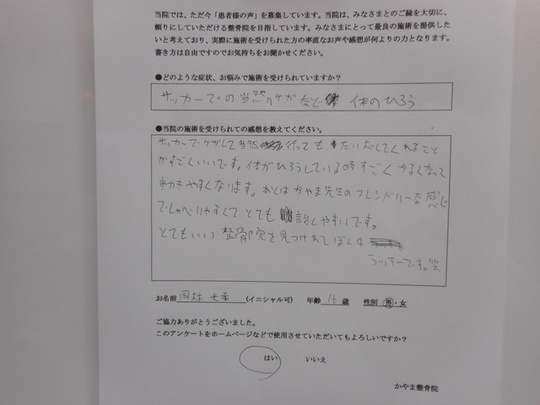 当院では、ただ今「患者様の声」を募集しています。当院は、みなさまとのご縁を大切に、
頼りにしていただける整骨院を目指しています。みなさまにとって最良の施術を提供した
いと考えており、実際に施術を受けられた方の率直なお声や感想が何よりの力となります。
書き方は自由ですのでお気持ちをお聞かせください。
●どのような症状、お悩みで施術を受けられていますか？
サッカーでの当然ケガ 体のひろう
●当院の施術を受けられての感想を教えてください。
サッカーでケガして当然行っても たい応してくれること
がすごくいいです。体がひろうしている時すごくかるくなって
動きやすくなります。あとはかやま先生のフレンドリーな感じ
でしゃべりやすくてとても 話しやすいです。
とてもいい整骨院を見つけれてぼくは
ラッキーです。笑
お名前 (イニシャル可) 年齢 16 歳 性別 男・女
ご協力ありがとうございました。
このアンケートをホームページなどで使用させていただいてもよろしいですか？
はい いいえ
かやま整骨院